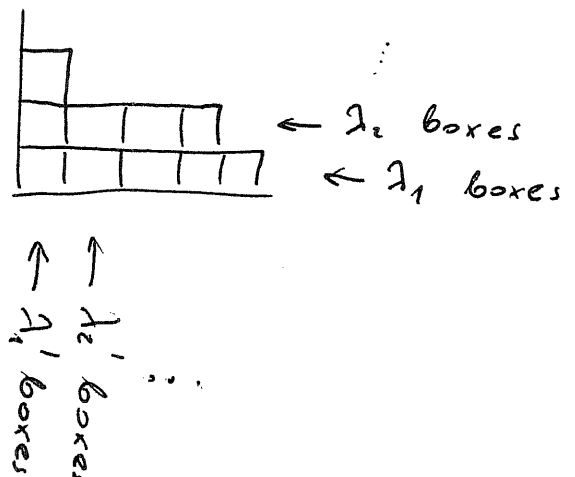 ⋮
← λ₂ boxes
← λ₁ boxes
← λ₁' boxes
← λ₂' boxes
...